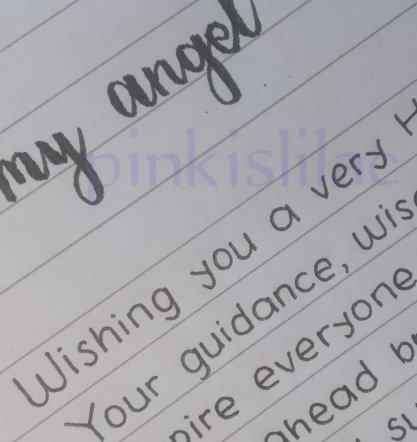 my angel
pinkislilac
Wishing you a very H
Your guidance, wis
pire everyone
ahead b
su